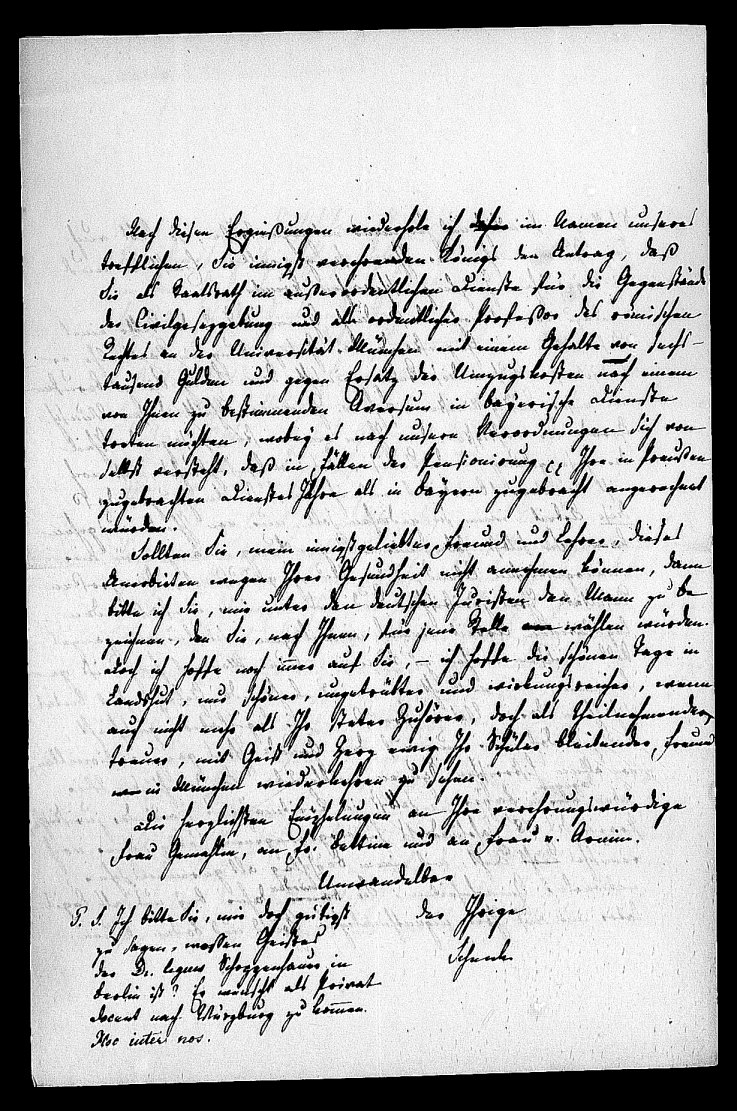 Nach diesen Ergießungen wiederhole ich im Namen unseres
trefflichen, Sie innigst verehrenden Königs den Antrag, daß
Sie als Staatsrath im außerordentlichen Dienste für die Gegenstände
der Civilgesetzgebung und als ordentlicher Professor des römischen
Rechtes an der Universität München mit einem Gehalte von sechs-
tausend Gulden und gegen Ersatz der Umzugskosten nach einem
von Ihnen zu bestimmenden Aversum in bayerische Dienste
treten möchten, wobey es nach unsern Verordnungen sich von
selbst versteht, daß in Fällen der Pensionirung Ihre in Preußen
zugebrachten Dienstes Jahre als in Bayern zugebracht angerechnet
würden.
Sollten Sie, mein innigstgeliebter Freund und Lehrer, dieses
Anerbieten wegen Ihrer Gesundheit nicht annehmen können, dann
bitte ich Sie, mir unter den deutschen Juristen den Mann zu be
zeichnen, den Sie, nach Ihnen, für jene Stelle wählen würden.
Doch ich hoffe noch immer auf Sie, – ich hoffe die schönen Tage in
Landshut, nur schöner, ungetrübter und wirkungsreicher, wenn
auch nicht mehr als Ihr steter Zuhörer, doch als theilnehmender,
treuer, mit Geist und Herz ewig Ihr Schüler bleibender, Freund
in München wiederkehren zu sehen.
Die herzlichsten Empfehlungen an Ihre verehrungswürdige
Frau Gemahlin, an Fr. Bettine und an Frau v. Arnim.
Unwandelbar
der Ihrige
Schenk
P. S. Ich bitte Sie, mir doch gütigst
zu sagen, wessen Geistes
der Dr. legens Schoppenhauer in
Berlin ist? Er wünscht als Privat
docent nach Würzburg zu kommen.
Hoc inter nos.